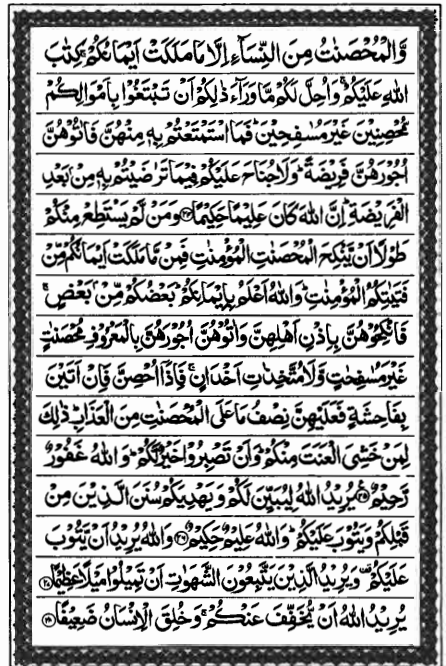 وَّالْمُحْصَنٰتُ مِنَ النِّسَآءِ اِلَّا مَا مَلَكَتْ اَيْمَانُكُمْ ۚ كِتٰبَ
اللّٰهِ عَلَيْكُمْ ۚ وَاُحِلَّ لَكُمْ مَّا وَرَآءَ ذٰلِكُمْ اَنْ تَبْتَغُوْا بِاَمْوَالِكُمْ
مُّحْصِنِيْنَ غَيْرَ مُسٰفِحِيْنَ ؕ فَمَا اسْتَمْتَعْتُمْ بِهٖ مِنْهُنَّ فَاٰتُوْهُنَّ
اُجُوْرَهُنَّ فَرِيْضَةً ؕ وَلَا جُنَاحَ عَلَيْكُمْ فِيْمَا تَرٰضَيْتُمْ بِهٖ مِنْۢ بَعْدِ
الْفَرِيْضَةِ ؕ اِنَّ اللّٰهَ كَانَ عَلِيْمًا حَكِيْمًا ﴿۲۴﴾ وَمَنْ لَّمْ يَسْتَطِعْ مِنْكُمْ
طَوْلًا اَنْ يَّنْكِحَ الْمُحْصَنٰتِ الْمُؤْمِنٰتِ فَمِنْ مَّا مَلَكَتْ اَيْمَانُكُمْ مِّنْ
فَتَيٰتِكُمُ الْمُؤْمِنٰتِ ؕ وَاللّٰهُ اَعْلَمُ بِاِيْمَانِكُمْ ؕ بَعْضُكُمْ مِّنْۢ بَعْضٍ ۚ
فَانْكِحُوْهُنَّ بِاِذْنِ اَهْلِهِنَّ وَاٰتُوْهُنَّ اُجُوْرَهُنَّ بِالْمَعْرُوْفِ مُحْصَنٰتٍ
غَيْرَ مُسٰفِحٰتٍ وَّلَا مُتَّخِذٰتِ اَخْدَانٍ ۚ فَاِذَاۤ اُحْصِنَّ فَاِنْ اَتَيْنَ
بِفَاحِشَةٍ فَعَلَيْهِنَّ نِصْفُ مَا عَلَى الْمُحْصَنٰتِ مِنَ الْعَذَابِ ؕ ذٰلِكَ
لِمَنْ خَشِىَ الْعَنَتَ مِنْكُمْ ؕ وَاَنْ تَصْبِرُوْا خَيْرٌ لَّكُمْ ؕ وَاللّٰهُ غَفُوْرٌ
رَّحِيْمٌ ﴿۲۵﴾ يُرِيْدُ اللّٰهُ لِيُبَيِّنَ لَكُمْ وَيَهْدِيَكُمْ سُنَنَ الَّذِيْنَ مِنْ
قَبْلِكُمْ وَيَتُوْبَ عَلَيْكُمْ ؕ وَاللّٰهُ عَلِيْمٌ حَكِيْمٌ ﴿۲۶﴾ وَاللّٰهُ يُرِيْدُ اَنْ يَّتُوْبَ
عَلَيْكُمْ ۫ وَيُرِيْدُ الَّذِيْنَ يَتَّبِعُوْنَ الشَّهَوٰتِ اَنْ تَمِيْلُوْا مَيْلًا عَظِيْمًا ﴿۲۷﴾
يُرِيْدُ اللّٰهُ اَنْ يُّخَفِّفَ عَنْكُمْ ۚ وَخُلِقَ الْاِنْسَانُ ضَعِيْفًا ﴿۲۸﴾